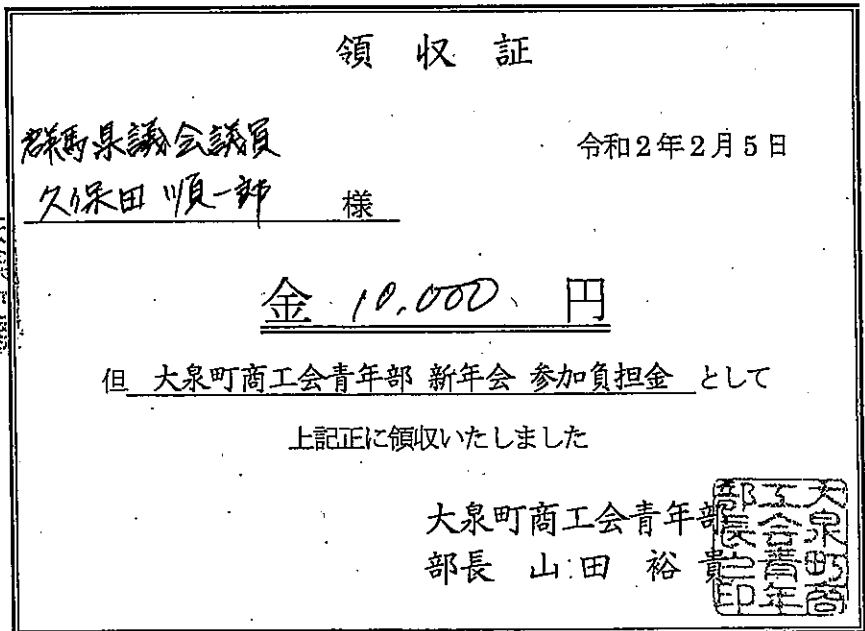 領収証
群馬県議会議員
令和2年2月5日
久保田順一郎 様
金 10,000 円
但 大泉町商工会青年部 新年会 参加負担金 として
上記正に領収いたしました
大泉町商工会青年部
部長 山田 裕貴
大泉町商
工会青年
部長之印